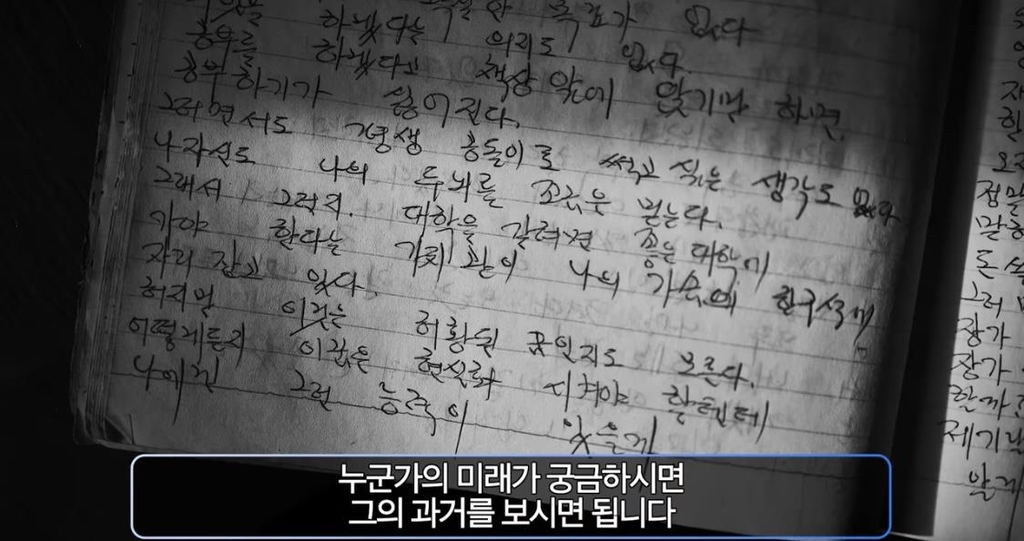 목표가 없다
하겠다는 의리도 없다.
공부를 하겠다고 책상 앞에 앉기만 하면
공부하기가 싫어진다.
그러면서도 평생 공돌이로 썩고 싶은 생각도 없다
나 자신도 나의 두뇌를 조금은 믿는다.
그래서 그런지. 대학을 갈려면 좋은 대학에
가야 한다는 가치관이 나의 가슴에 한구석에
자리 잡고 있다.
허지만 이것는 허황된 꿈인지도 모른다.
어떻게든지 이 꿈은 현실화 시켜야 할텐데
나에겐 그런 능력이 있을게
오직
정말
말할
돈
그러
장가
장가
할까
제기랄
누군가의 미래가 궁금하시면
그의 과거를 보시면 됩니다